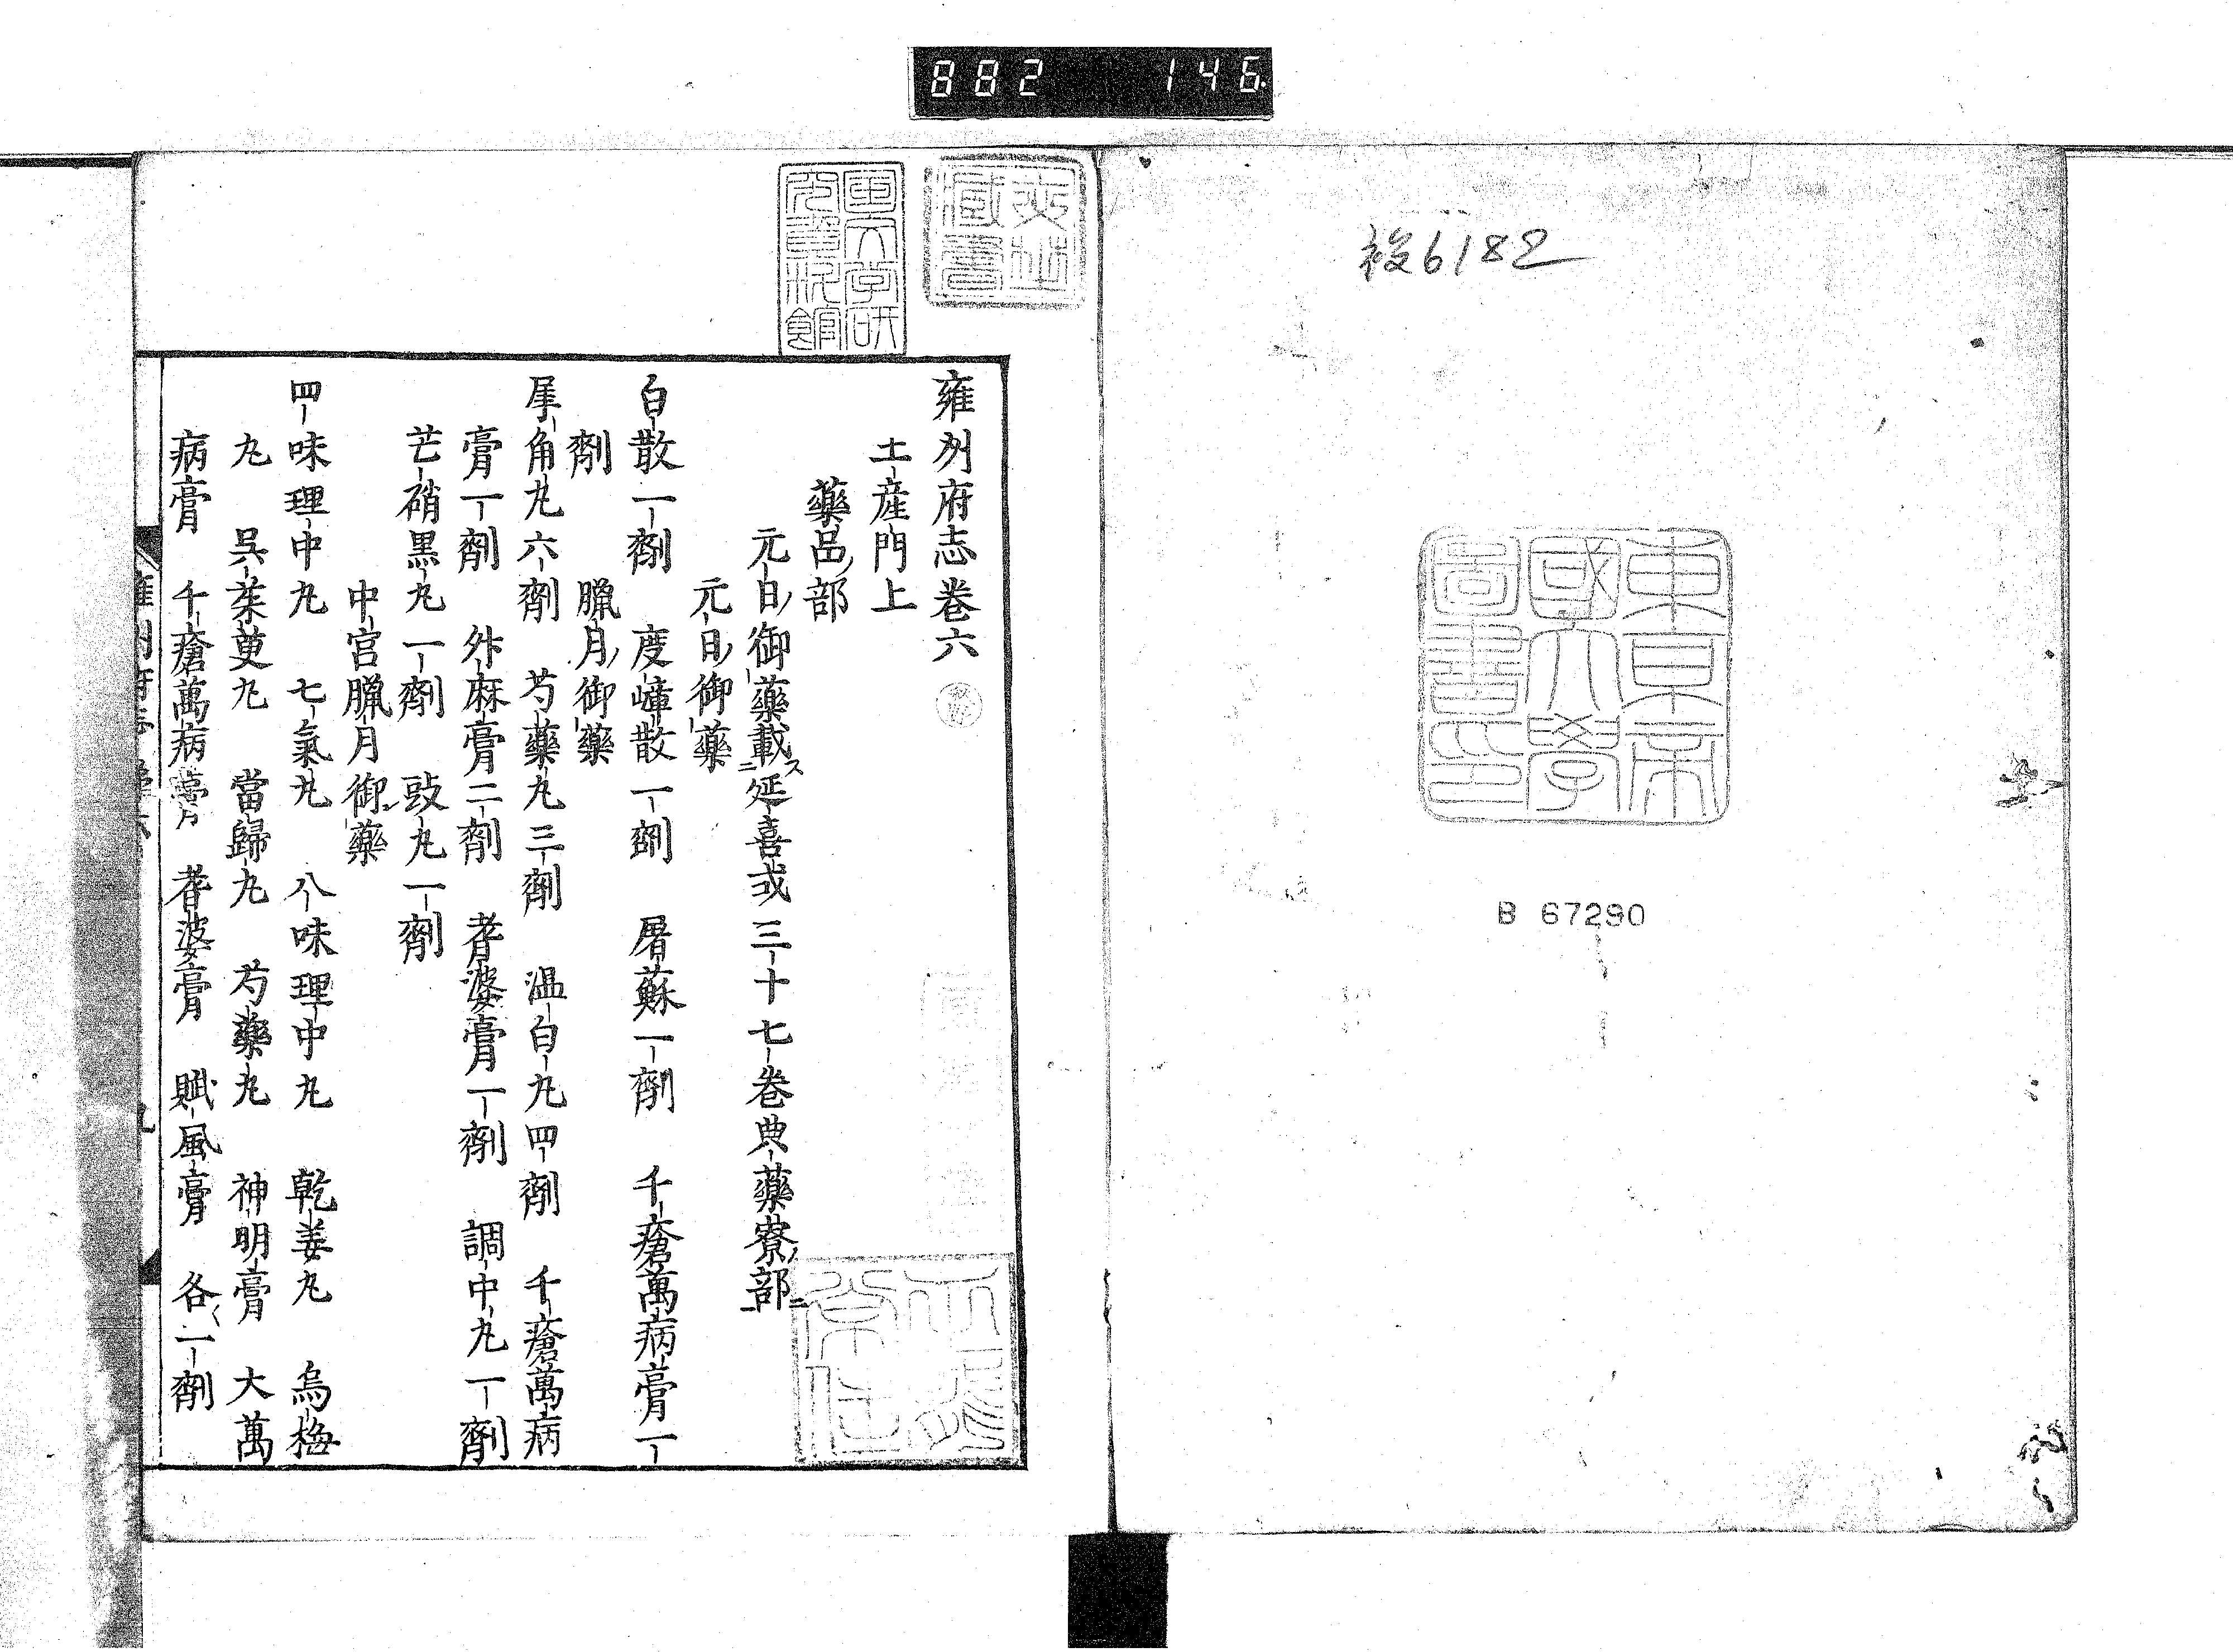 882 146
複6182
東京帝
國大學
圖書印
B 67290
雍州府志卷六
土産門上
藥品部
元日御藥載ス二延喜式三十七卷典藥寮ノ部ニ一
元日御藥
白散一劑 度嶂散一劑 屠蘇一劑 千瘡萬病膏一
劑
臘月御藥
犀角丸六劑 芍藥丸三劑 温白丸四劑 千瘡萬病
膏一劑 升麻膏二劑 耆婆膏一劑 調中丸一劑
芒硝黒丸一劑 豉丸一劑
中宮臘月御藥
四味理中丸 七氣丸 八味理中丸 乾姜丸 烏梅
丸 呉茱萸丸 當歸丸 芍藥丸 神明膏 大萬
病膏 千瘡萬病膏 耆婆膏 賊風膏 各一劑